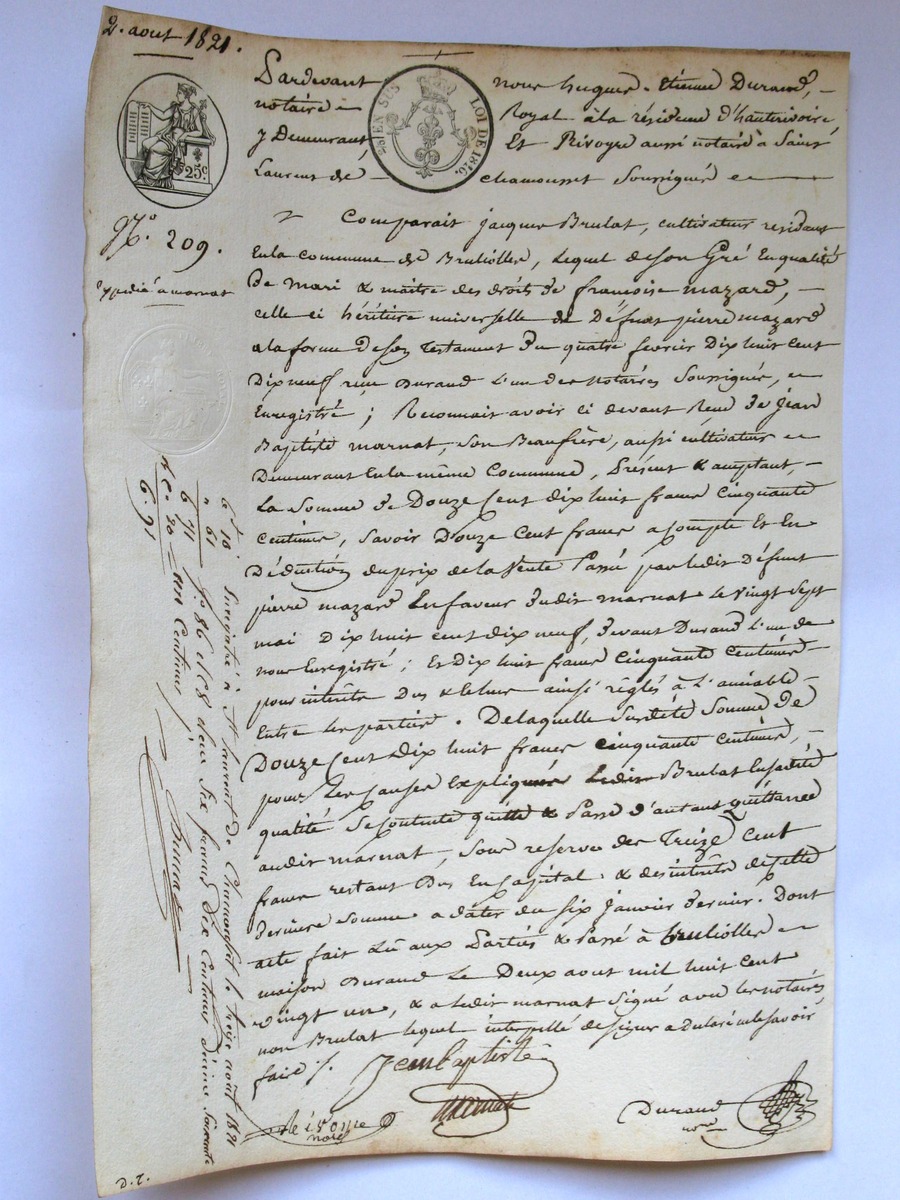 2. aout 1821.
Pardevant nous hugues Etienne Durand,
notaire Royal à la résidence d'hauterivoire
y Demeurant Et Rivoyre aussi notaire à Saint
Laurent de chamousset soussignés
25 EN SUS LOI DE 1816.
25c
N.º 209.
Expédié à marnat
Comparait jacques Brulat, cultivateur résidant
En la commune de Brulliolles, lequel de son Gré En qualité
De mari & maitre des droits de françoise mazard,
celle ci héritière universelle de Défunt pierre mazard
a la forme de son Testament du quatre fevrier Dix huit cent
Dix neuf, reçu Durand L'un des Notaires Soussignés, et
Enregistré ; Reconnait avoir ci devant Reçu de jean
Baptiste marnat, son Beaufrère, aussi cultivateur et
Demeurant En la même Commune, Présent & acceptant,
La Somme de Douze Cent dix huit francs cinquante
centimes, savoir Douze Cent francs a compte Et En
Déduction du prix de la Vente Passé par ledit Défunt
pierre mazard En faveur dudit marnat le vingt Sept
mai Dix huit cent dix neuf, devant Durand L'un de
nous Enregistré ; Et Dix huit francs cinquante centimes
pour intérêts dus & échus ainsi réglés à l'amiable
Entre les parties. De laquelle Susdite Somme de
Douze Cent Dix huit francs cinquante centimes,
pour les causes Expliquées Ledit Brulat En sadite
qualité Se contente quitte & Passe d'autant quittance
audit marnat, Sous reserve des Treize Cent
francs restant Dus En Capital & des intérêts de cette
dernière somme a dater du six janvier dernier. Dont
acte fait Lû aux Parties & Passé à Brulliolles
maison Durand Le Deux aout mil huit cent
vingt un, & a ledit marnat Signé avec les notaires
non Brulat lequel interpellé de signer a déclaré ne le savoir
faire /.
Jean Baptiste
marnat
Rivoyre
nore
Durand
nore
D. T.
6 10
61
6 71
20
6. 91
Enregistré à St Laurent de Chamousset le treize août 1821
fº 86 rº c 8 reçu Six francs Dix Centimes dixième Soixante
un Centimes /.